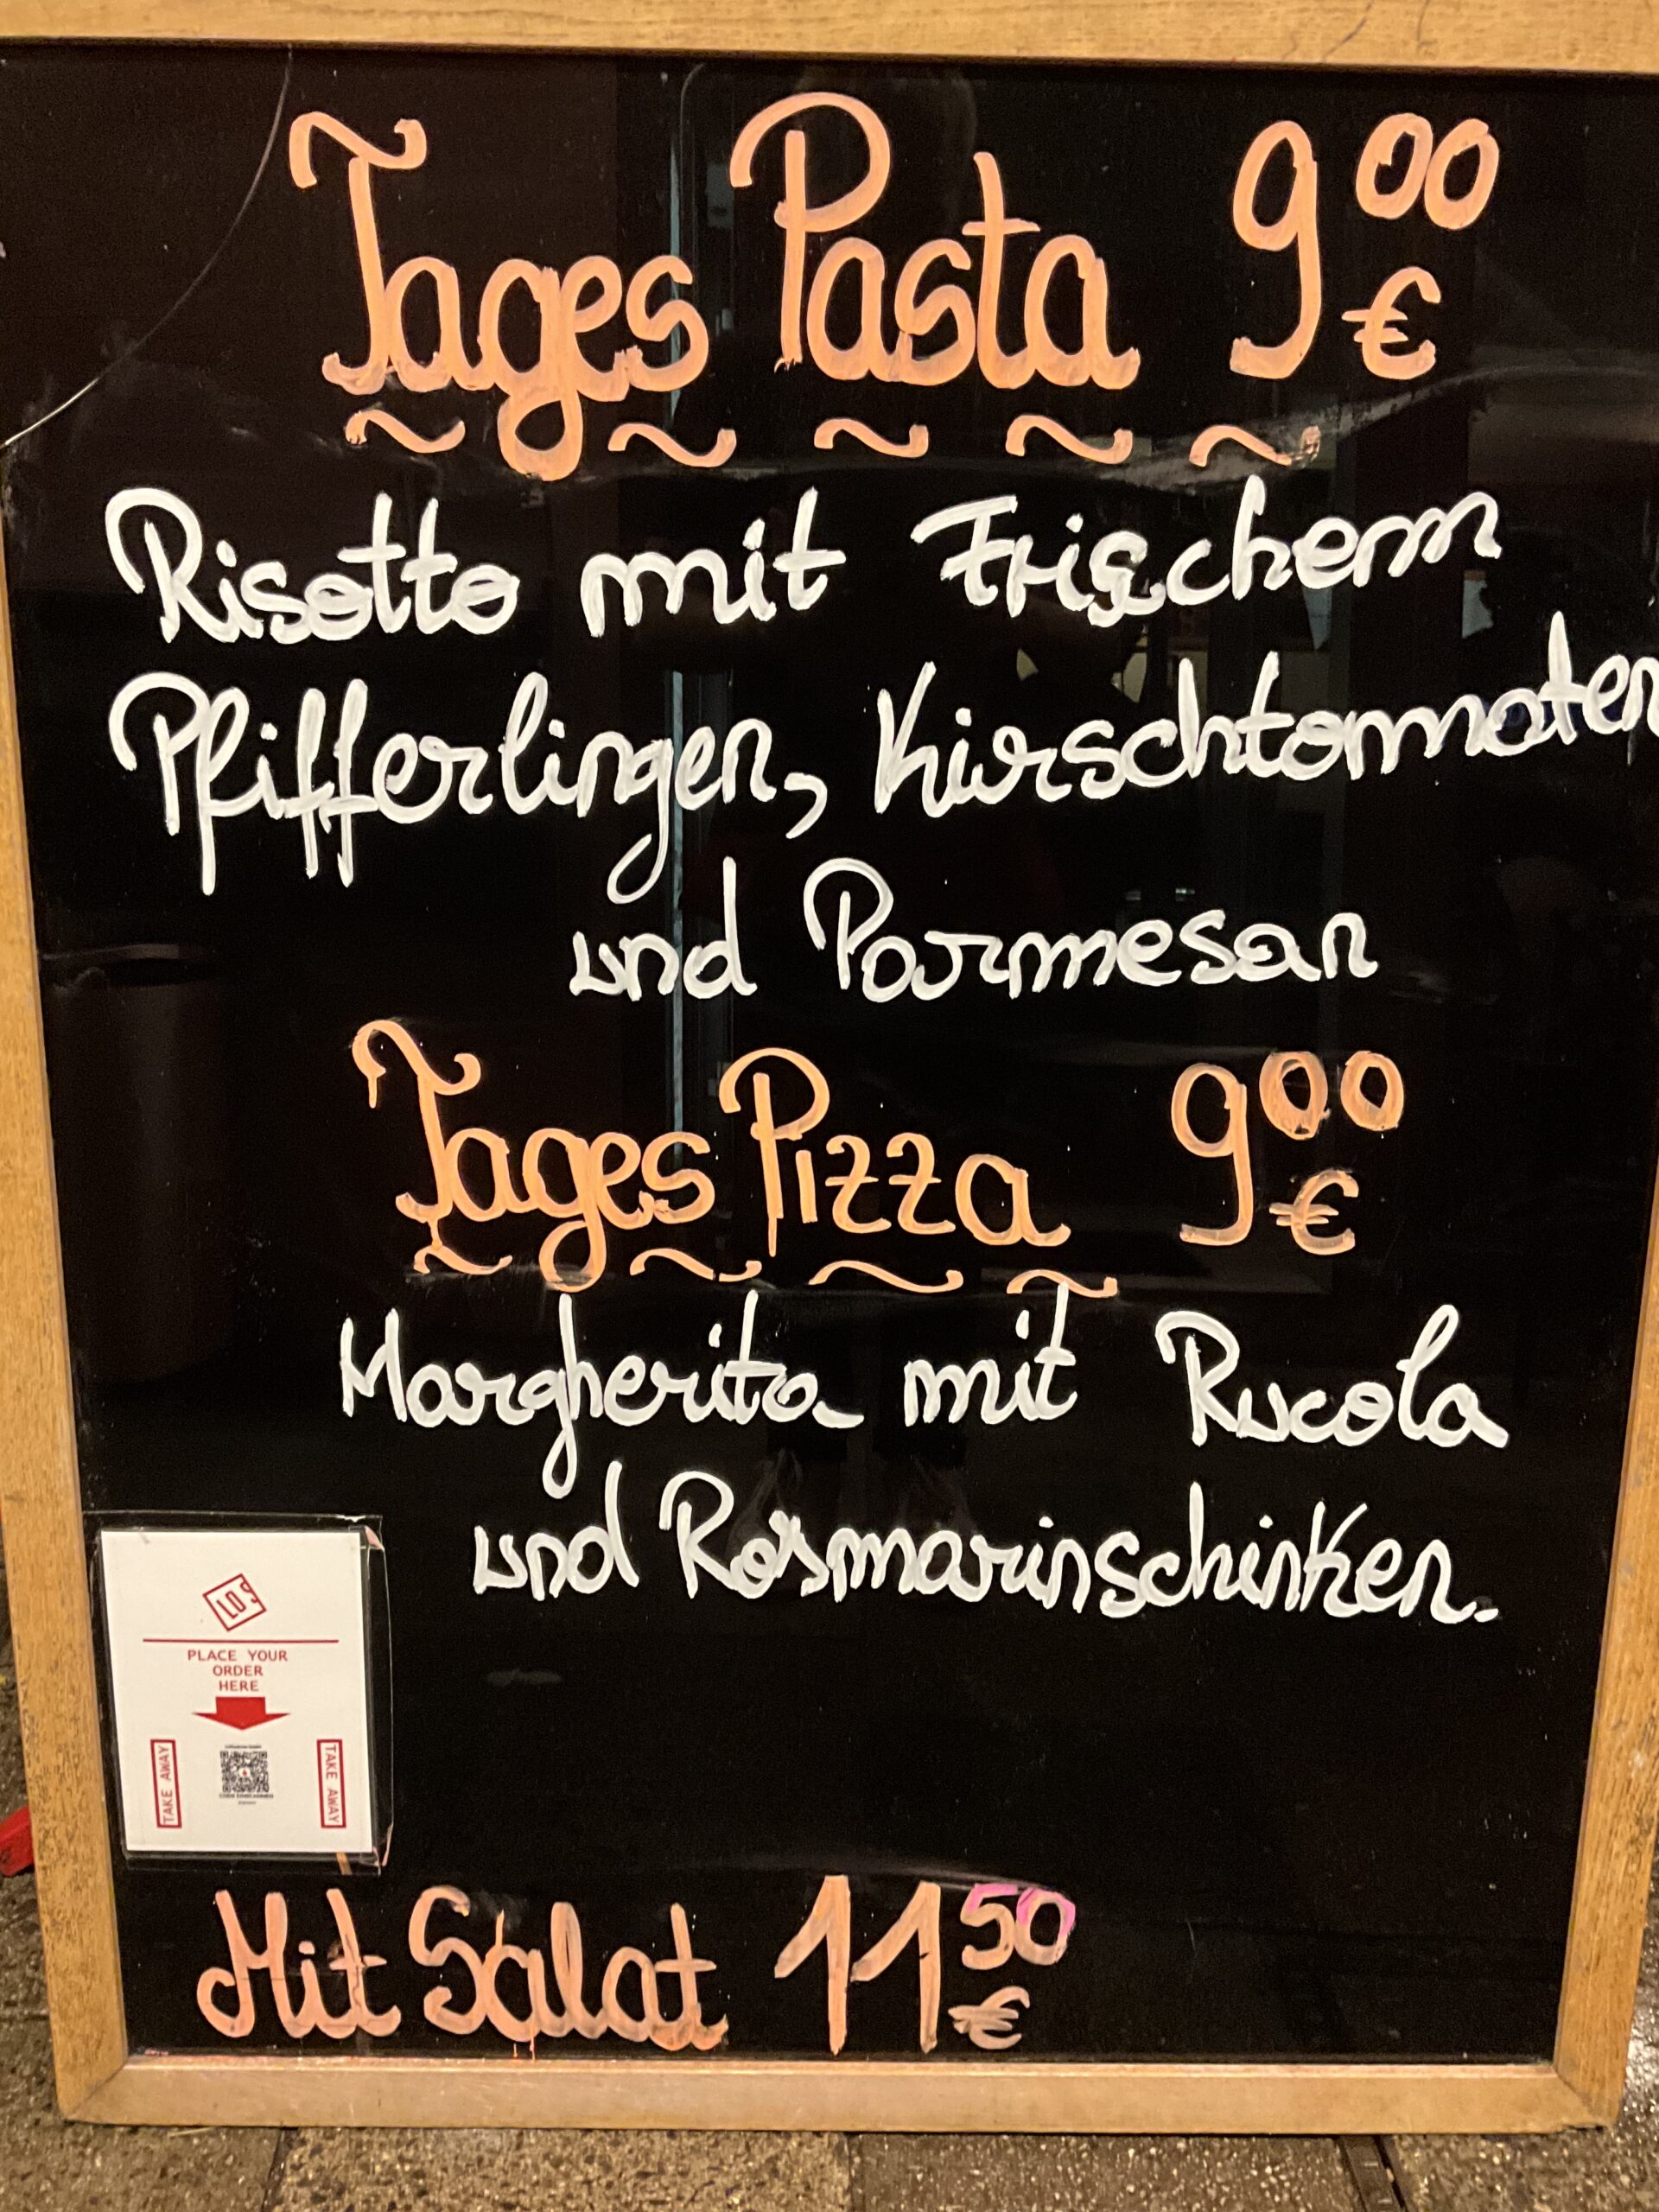 Tages Pasta 9 00 €
Risotto mit Frischem
Pfifferlingen, Kirschtomaten
und Parmesan
Tages Pizza 9 00 €
Margherita mit Rucola
und Rosmarinschinken.
LOS
PLACE YOUR
ORDER
HERE
TAKE AWAY
TAKE AWAY
CODE EINSCANNEN
Mit Salat 11 50 €